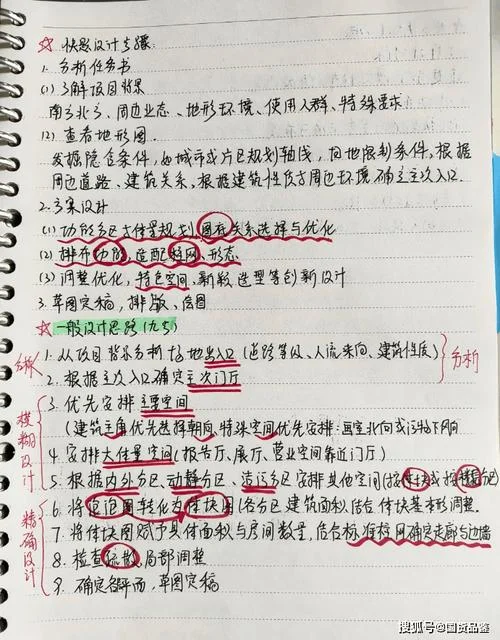 ☆ 快题设计步骤:
1. 分析任务书
(1) 了解项目背景
南方北方、周边业态、地形环境、使用人群、特殊要求
(2) 查看地形图.
发掘隐含条件,如城市或片区规划轴线,用地限制条件,根据
周边道路、建筑关系,根据建筑性质与周边环境确定主次入口.
2. 方案设计
(1) 功能分区大体量规划,图底关系选择与优化
(2) 排布功能,适配柱网、形态
(3) 调整优化,特色空间、新颖造型等创新设计
3. 草图定稿,排版、绘图
☆ 一般设计思路(九步)
1. 从项目背景分析场地出入口(道路等级、人流来向、建筑性质)
2. 根据主次入口确定主次门厅
分析
分析
3. 优先安排主要空间
(建筑主角优先选择朝向、特殊空间优先安排.画室北向或污物下风向
4. 安排大体量空间(报告厅、展厅、营业空间靠近门厅)
5. 根据内外分区、动静分区、洁污分区安排其他空间(按体块或按
模糊设计
6. 将泡泡图转化为体块图(各分区建筑面积,结合体块基本形调整.
7. 将体块图赋予具体面积与房间数量,结合标准柱网确定走廊与边墙
8. 检查疏散,局部调整
9. 确定各平面,草图定稿
精确设计
搜狐号@国货品鉴